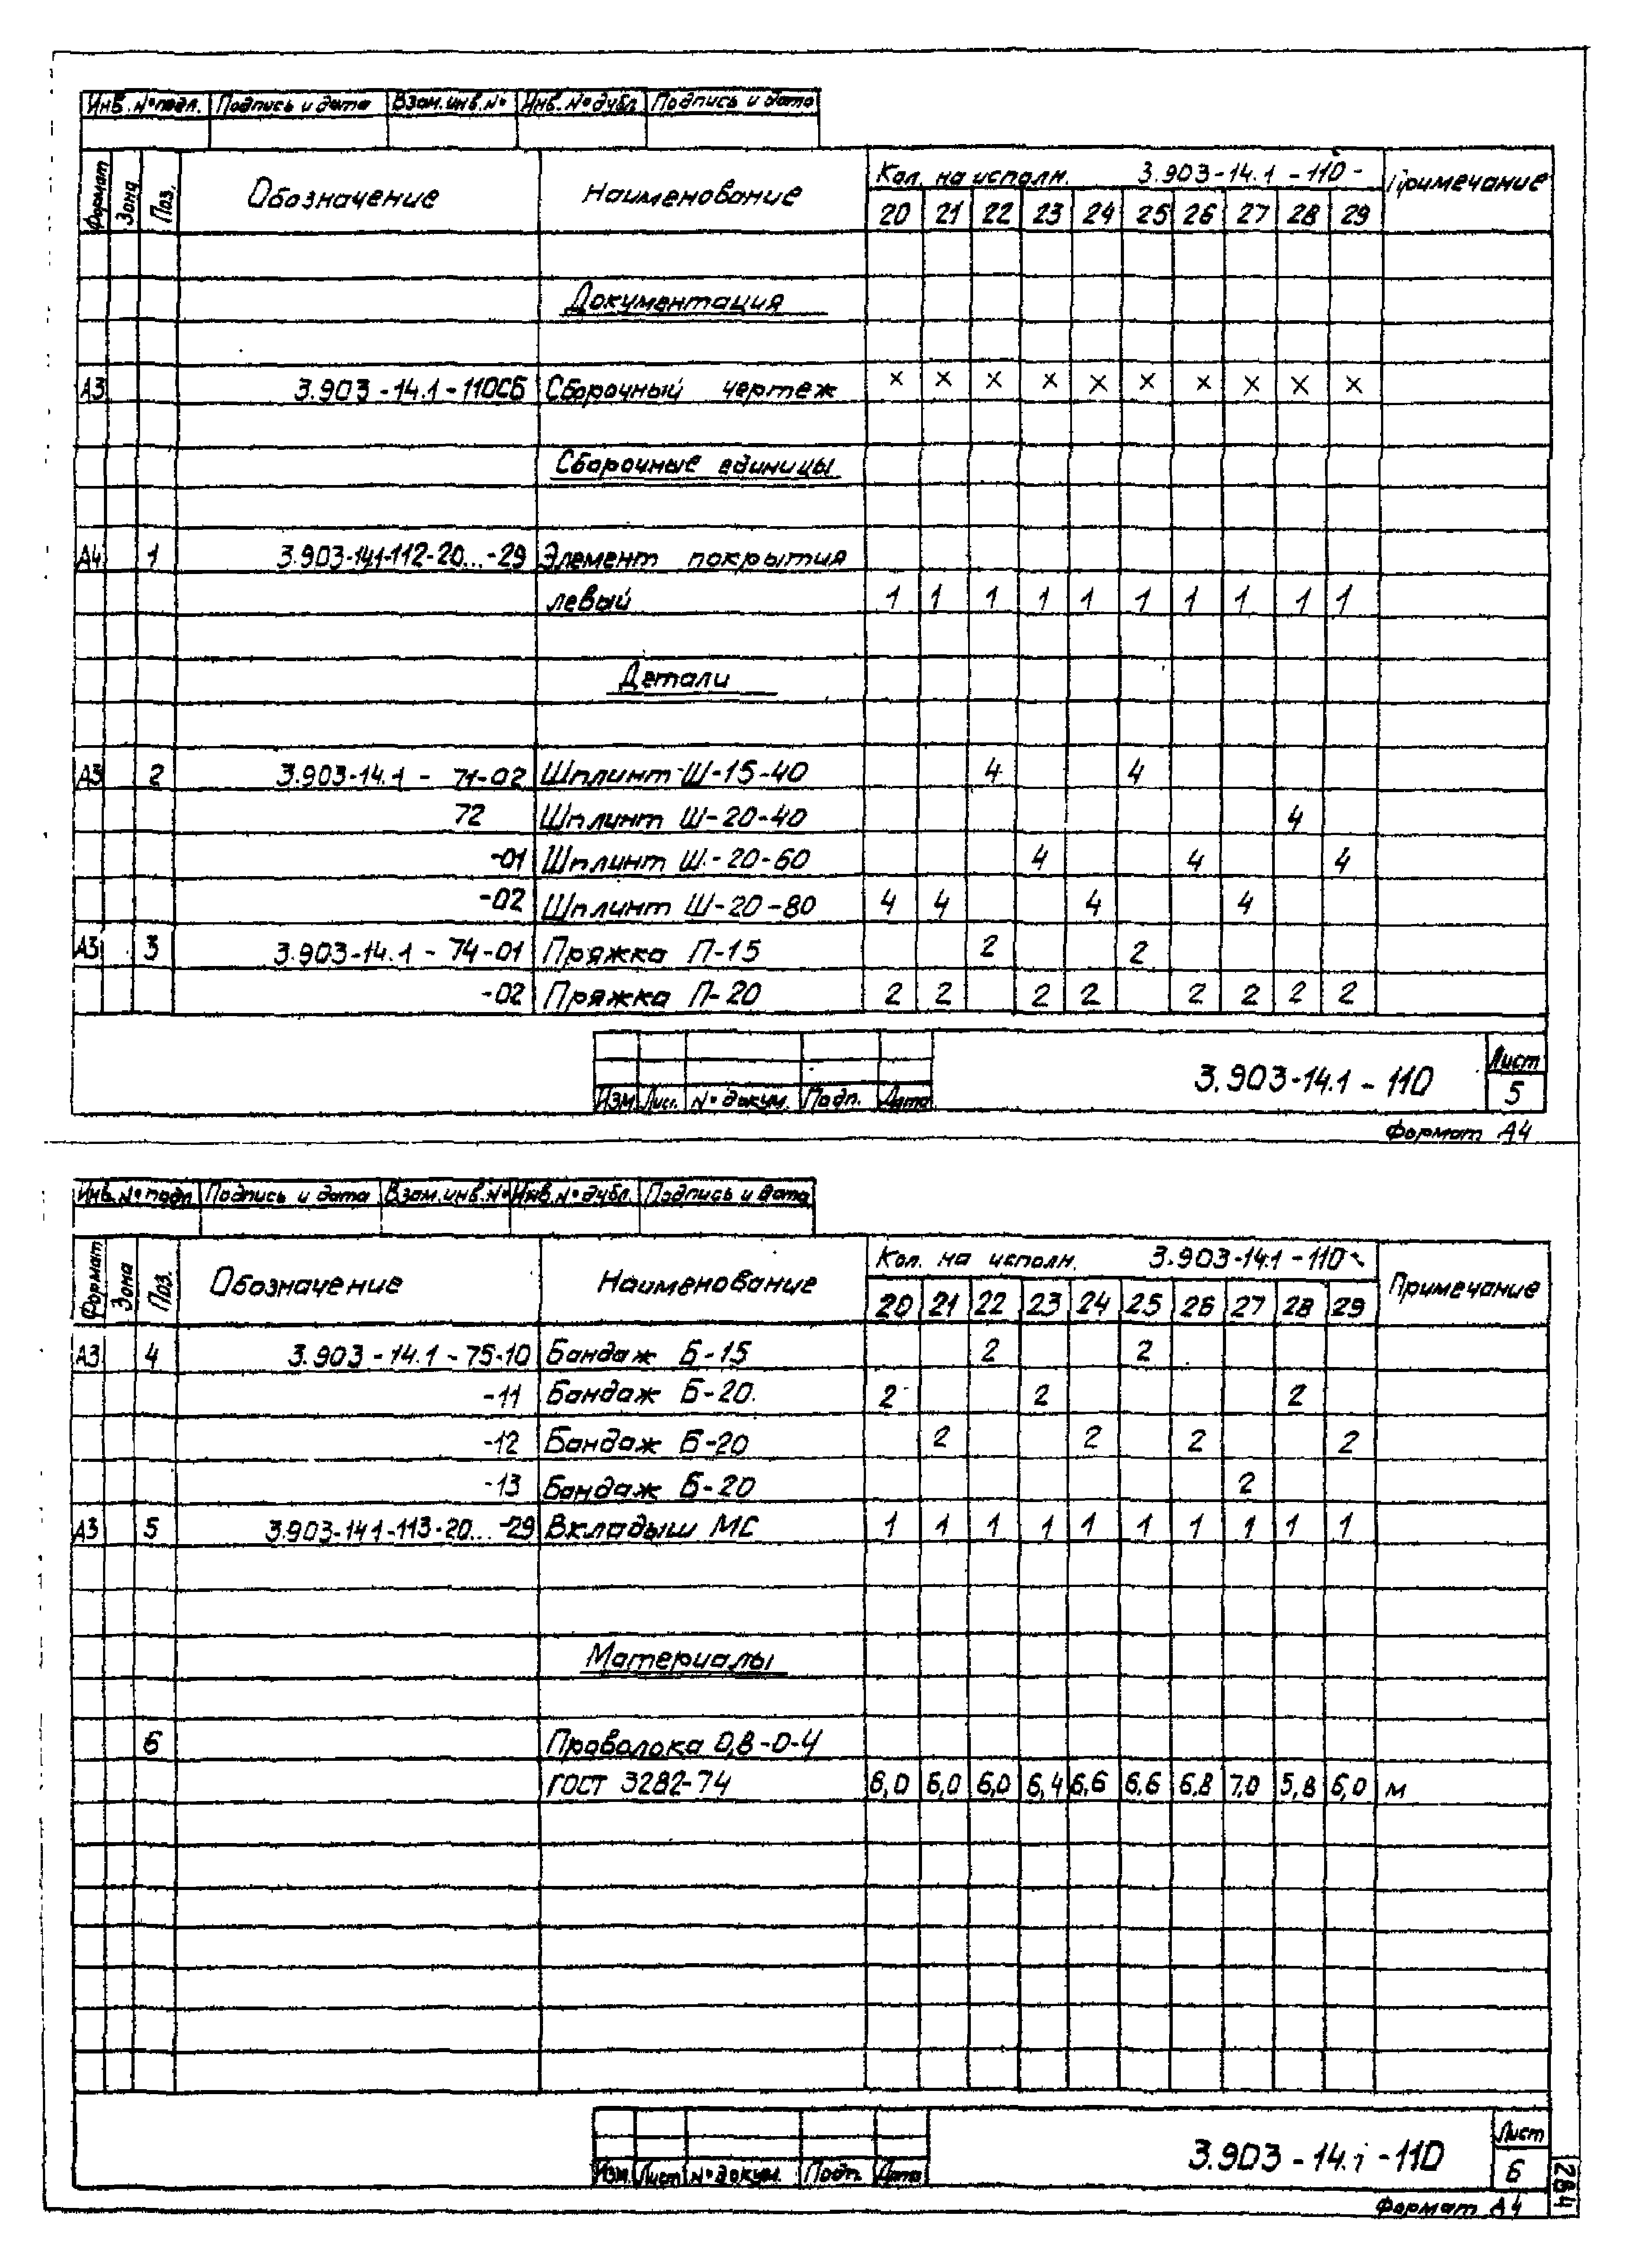 Инв.№подл. Подпись и дата Взам.инв.№ Инв.№дубл. Подпись и дата
Формат Зона Поз. Обозначение Наименование Кол. на исполн. 3.903-14.1-110- Примечание
20 21 22 23 24 25 26 27 28 29
Документация
А3 3.903-14.1-110СБ Сборочный чертеж × × × × × × × × × ×
Сборочные единицы
А4 1 3.903-14.1-112-20...-29 Элемент покрытия
левый 1 1 1 1 1 1 1 1 1 1
Детали
А3 2 3.903-14.1-71-02 Шплинт Ш-15-40 4 4
72 Шплинт Ш-20-40 4
-01 Шплинт Ш-20-60 4 4 4
-02 Шплинт Ш-20-80 4 4 4 4
А3 3 3.903-14.1-74-01 Пряжка П-15 2 2
-02 Пряжка П-20 2 2 2 2 2 2 2 2
Изм Лист. №докум. Подп. Дата 3.903-14.1-110 Лист 5
Формат А4
Инв.№подл Подпись и дата Взам.инв.№ Инв.№дубл. Подпись и дата
Формат Зона Поз. Обозначение Наименование Кол. на исполн. 3.903-14.1-110- Примечание
20 21 22 23 24 25 26 27 28 29
А3 4 3.903-14.1-75-10 Бандаж Б-15 2 2
-11 Бандаж Б-20. 2 2 2
-12 Бандаж Б-20 2 2 2 2
-13 Бандаж Б-20 2
А3 5 3.903-14.1-113-20...-29 Вкладыш МС 1 1 1 1 1 1 1 1 1 1
Материалы
6 Проволока 0,8-0-4
ГОСТ 3282-74 6,0 6,0 6,0 6,4 6,6 6,6 6,8 7,0 5,8 6,0 м
Изм. Лист №докум. Подп. Дата 3.903-14.1-110 Лист 6
Формат А4
2284